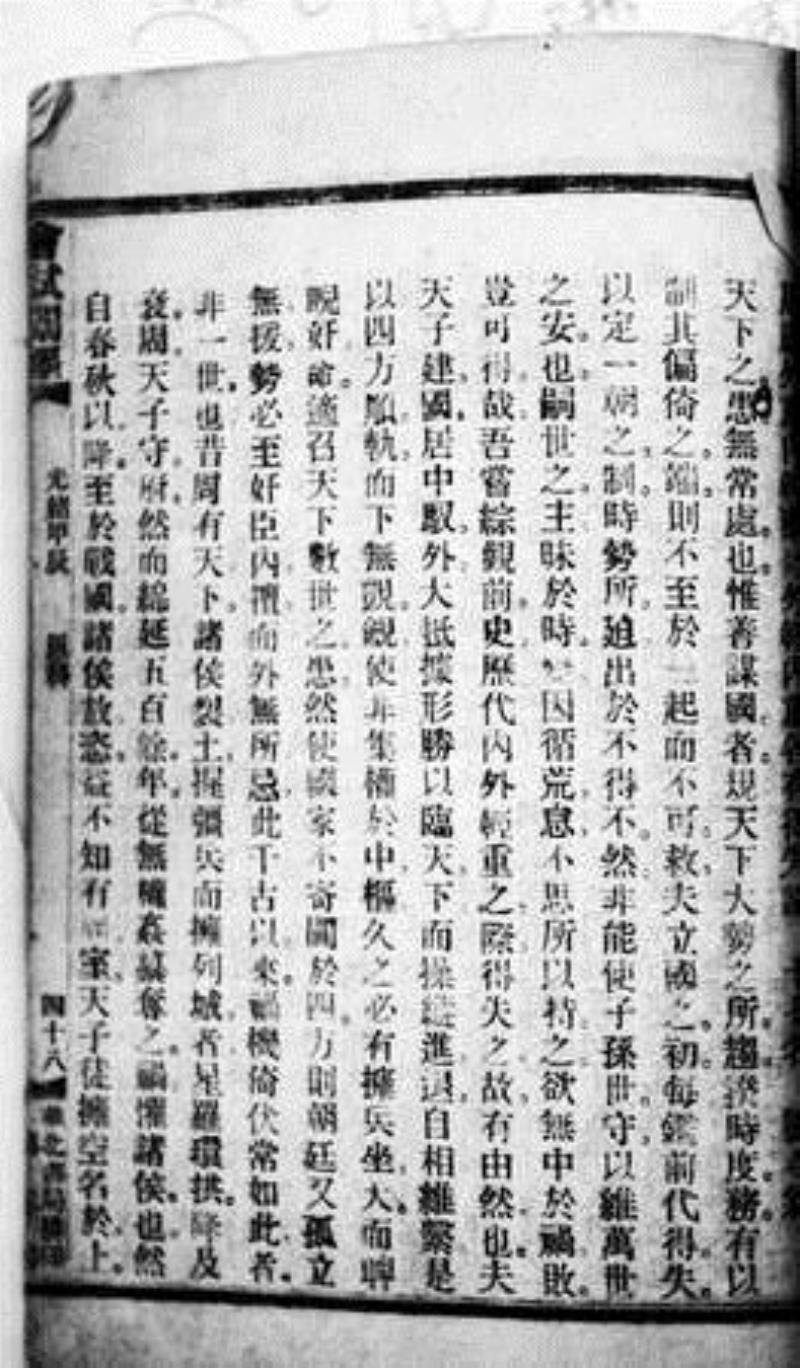 天下之患無常處也惟善謀國者規天下大勢之所趨揆時度務有以
制其偏倚之端則不至於一起而不可救夫立國之初每鑑前代得失
以定一朝之制時勢所迫出於不得不然非能使子孫世守以維萬世
之安也嗣世之主昧於時變因循荒怠不思所以持之欲無中於禍敗
豈可得哉吾嘗綜觀前史歷代內外輕重之際得失之故有由然也夫
天子建國居中馭外大抵據形勝以臨天下而操縱進退自相維繫是
以四方順軌而下無覬覦使非集權於中樞久之必有擁兵坐大而睥
睨奸命適召天下數世之患然使國家不寄閫於四方則朝廷又孤立
無援勢必至奸臣內擅而外無所忌此千古以來禍機倚伏常如此者
非一世也昔周有天下諸侯裂土握彊兵而擁列城者星羅環拱降及
衰周天子守府然而綿延五百餘年從無權姦篡奪之禍懼諸侯也然
自春秋以降至於戰國諸侯放恣並不知有室家天子徒擁空名於上
會試闈墨
光緒甲辰
四十八